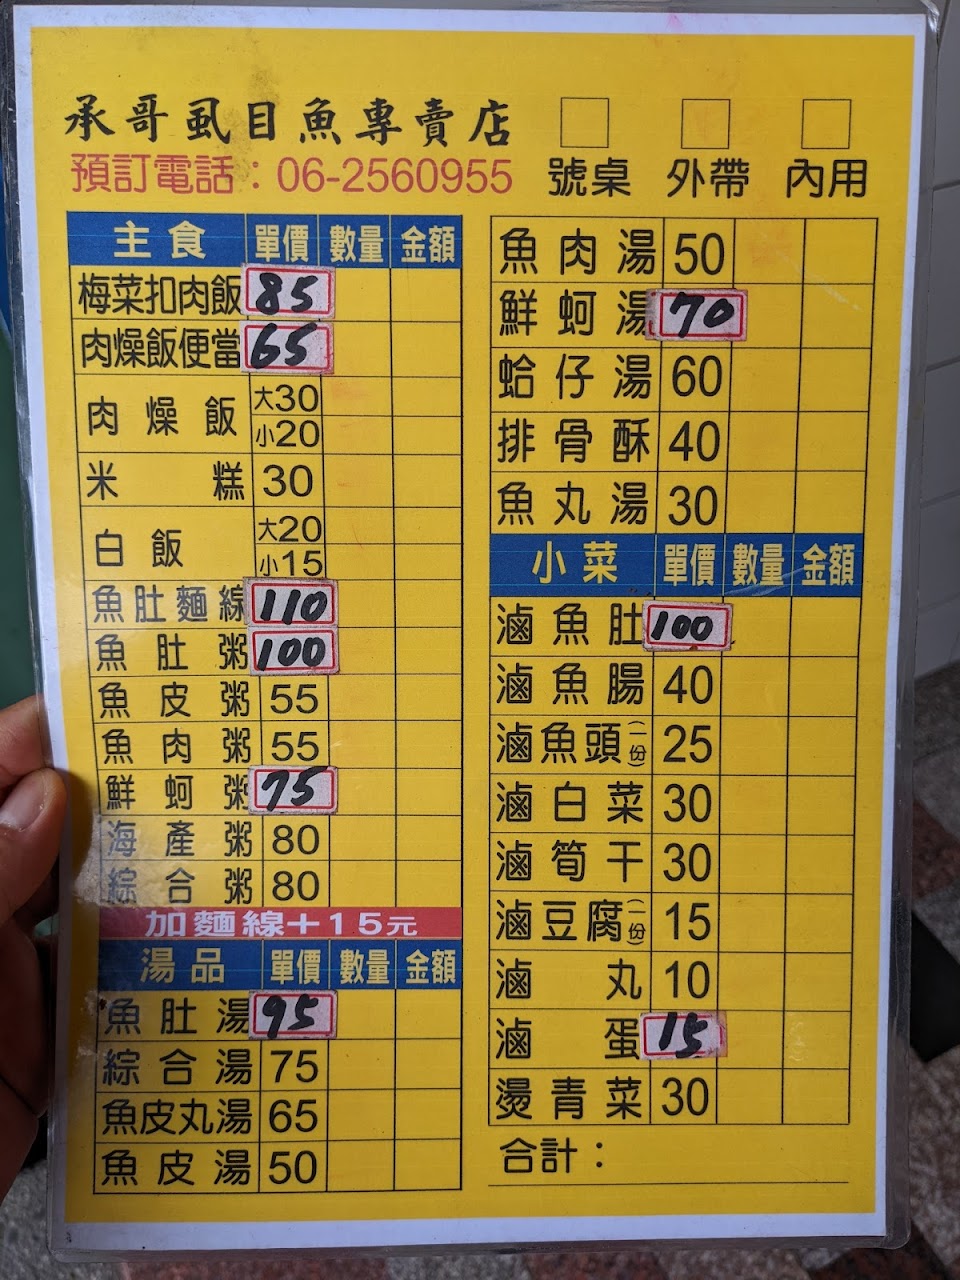 承哥虱目魚專賣店
預訂電話：06-2560955
號桌 外帶 內用
主食 單價 數量 金額
梅菜扣肉飯 85
肉燥飯便當 65
肉燥飯 大30
小20
米糕 30
白飯 大20
小15
魚肚麵線 110
魚肚粥 100
魚皮粥 55
魚肉粥 55
鮮蚵粥 75
海產粥 80
綜合粥 80
加麵線+15元
湯品 單價 數量 金額
魚肚湯 95
綜合湯 75
魚皮丸湯 65
魚皮湯 50
魚肉湯 50
鮮蚵湯 70
蛤仔湯 60
排骨酥 40
魚丸湯 30
小菜 單價 數量 金額
滷魚肚 100
滷魚腸 40
滷魚頭(一份) 25
滷白菜 30
滷筍干 30
滷豆腐(一份) 15
滷丸 10
滷蛋 15
燙青菜 30
合計：